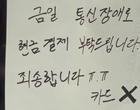 금일 통신장애로
현금 결제 부탁드립니다
죄송합니다 ㅠㅠ
카드 X